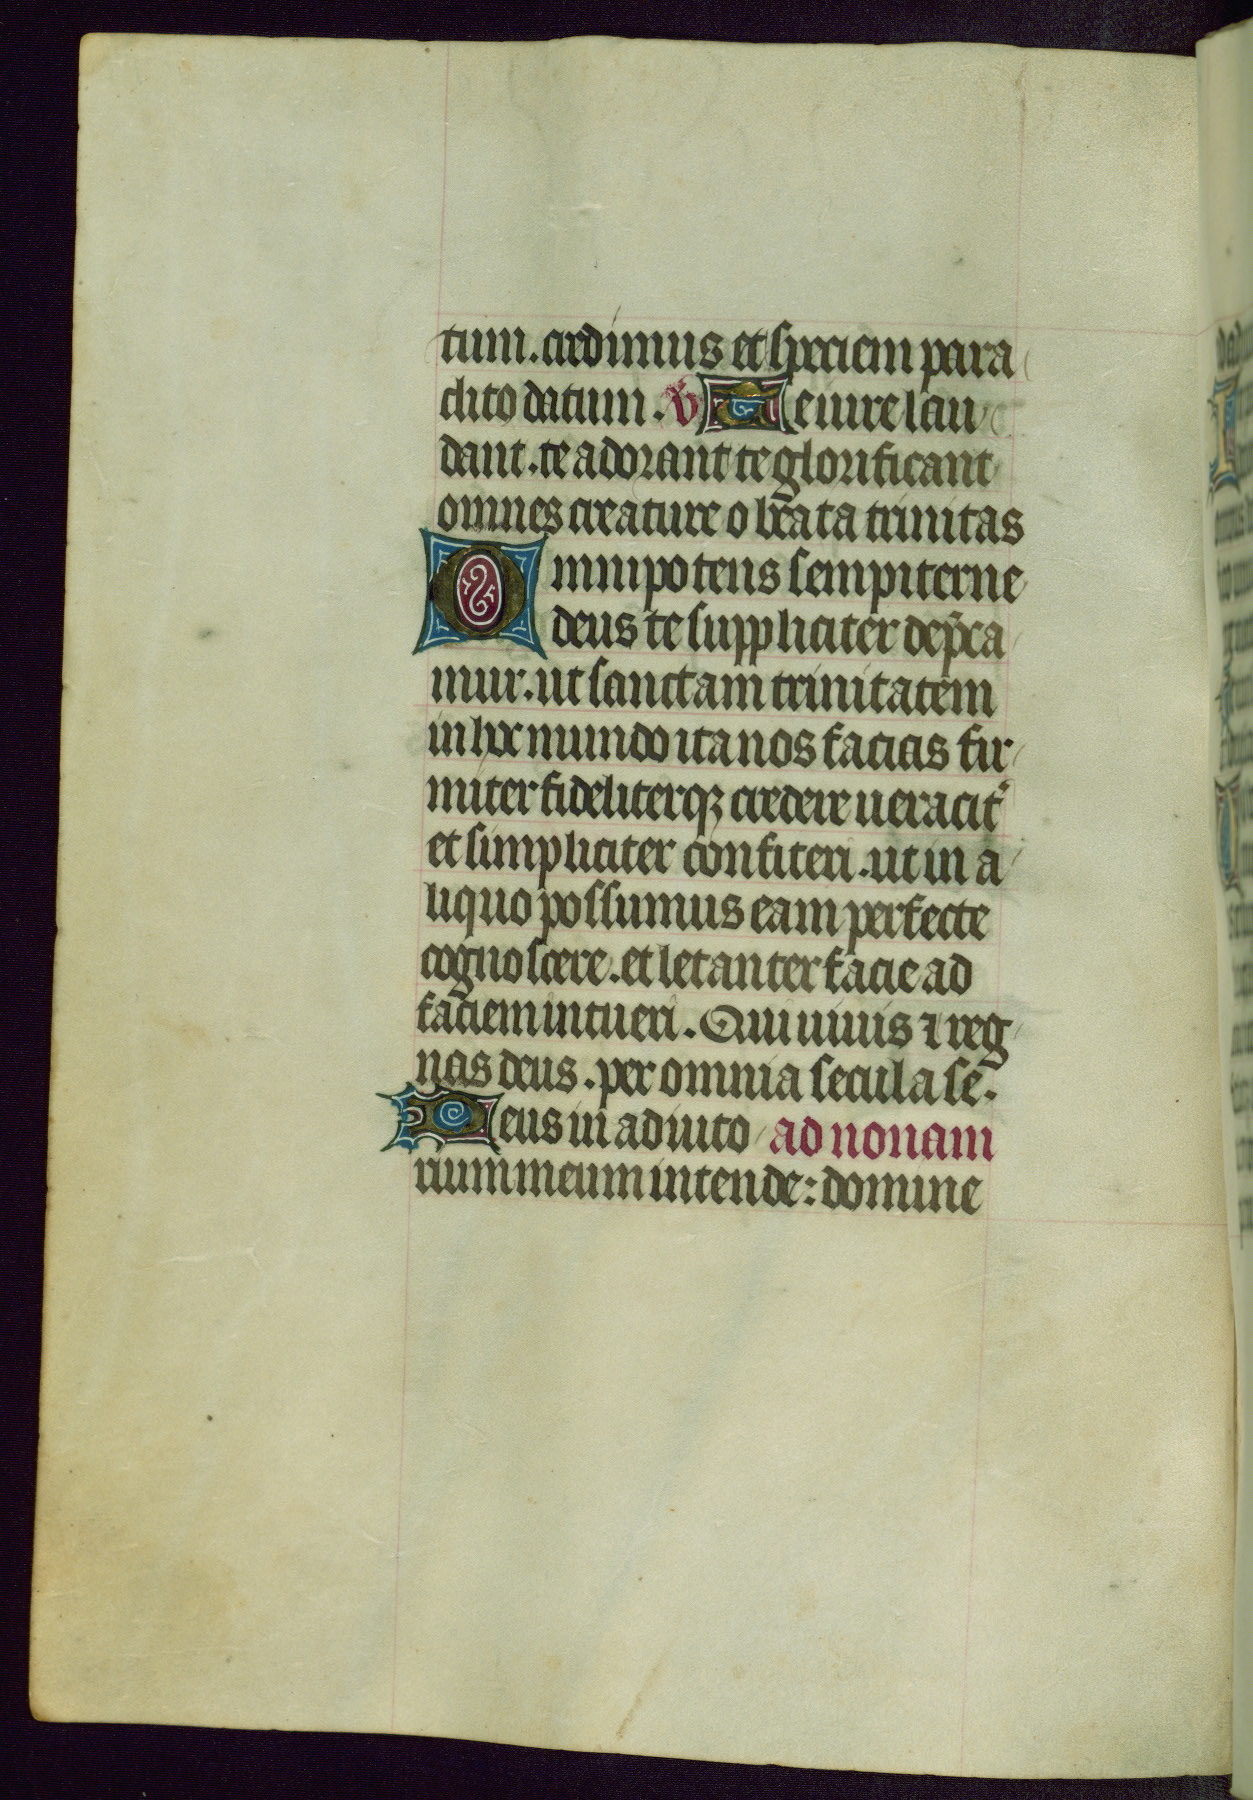 tum. credimus et speciem para
clito datum. v̄ Te iure lau
dant. te adorant te glorificant
omnes creature o bēata trinitas
Omnipotens sempiterne
deus te suppliciter dep̄ca
mur. ut sanctam trinitatem
in hoc mundo ita nos facias fir
miter fideliterqꝫ credere ueracit᷑
et simpliciter confiteri. ut in a
liquo possumus eam perfecte
cognoscere. et letanter facie ad
faciem intueri. Qui uiuis ⁊ reg
nas deus. per omnia secula se.
Deus in adiuto ad nonam
rium meum intende: domine